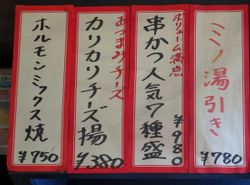 ミノ湯引き
¥780
ボリューム満点
串かつ人気7種盛
¥980
あつあつチーズ
カリカリチーズ揚
¥380
ホルモンミックス焼
¥750